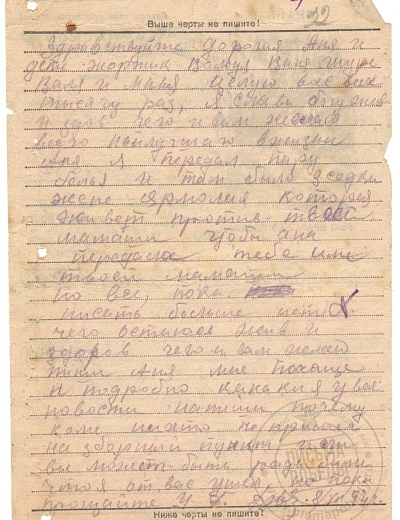 Выше черты не пишите!
Здравствуйте дорогия Аня и
дети жоржик Вова Ваня шура
Валя и маня целую вас всех
тысячу раз, я слава богу жив
и здав чего и вам желаю
всего наилучшего в жизни
Аня я передал пару
белья и там было
жене ярмолия которая
живет против твоей
мамаши чтобы она
передала тебе или
твоей мамаши
но все, пока
писать больше нет
чего остаюся жив и
здоров чего и вам желаю
Аня мне
и подробно какия у вас
новости напиши почему
коле никто не пришел
на зборный пункт
вы может быть
што я от вас ушел, но пока
прощайте
Ниже черты не пишите!